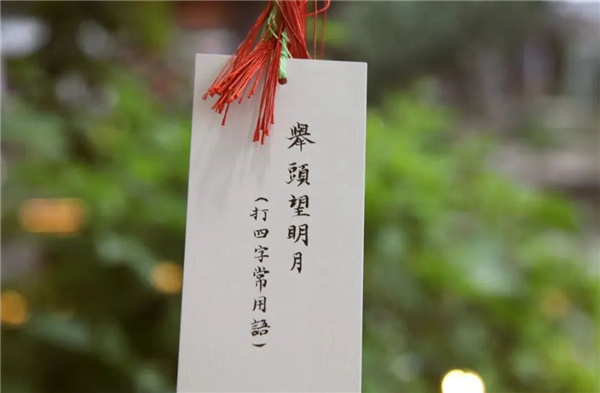 舉頭望明月
（打四字常用語）